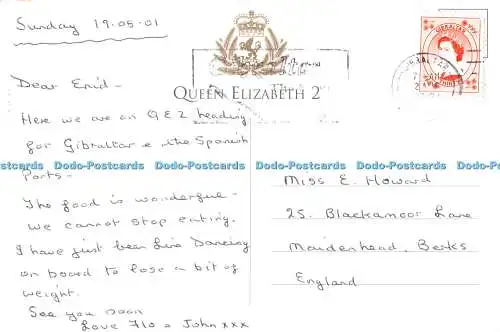 Sunday 19.05.01
Dear Enid -
Here we are on QE2 heading
for Gibraltar & the Spanish
Ports -
The food is wonderful -
we cannot stop eating.
I have just been Line Dancing
on board to lose a bit of
weight.
See you soon
Love Flo & John xxx
QUEEN ELIZABETH 2
GIBRALTAR
Miss E. Howard
25. Blackamoor Lane
Maidenhead, Berks
England
Dodo-Postcards Dodo-Postcards Dodo-Postcards Dodo-Postcards Dodo-Postcards